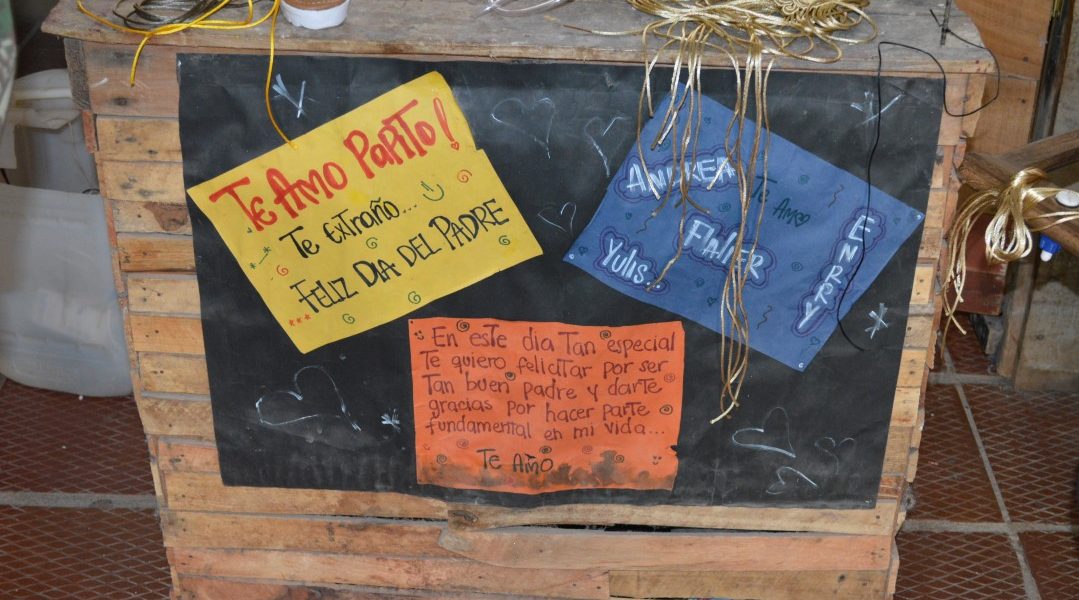 Te Amo Papito!
Te extraño...
Feliz Dia del Padre
Andrea
Te Amo
Flaiter
Yulis..
Enrry
En este dia Tan especial
Te quiero felicitar por ser
Tan buen padre y darte
gracias por hacer parte
fundamental en mi vida...
Te Amo